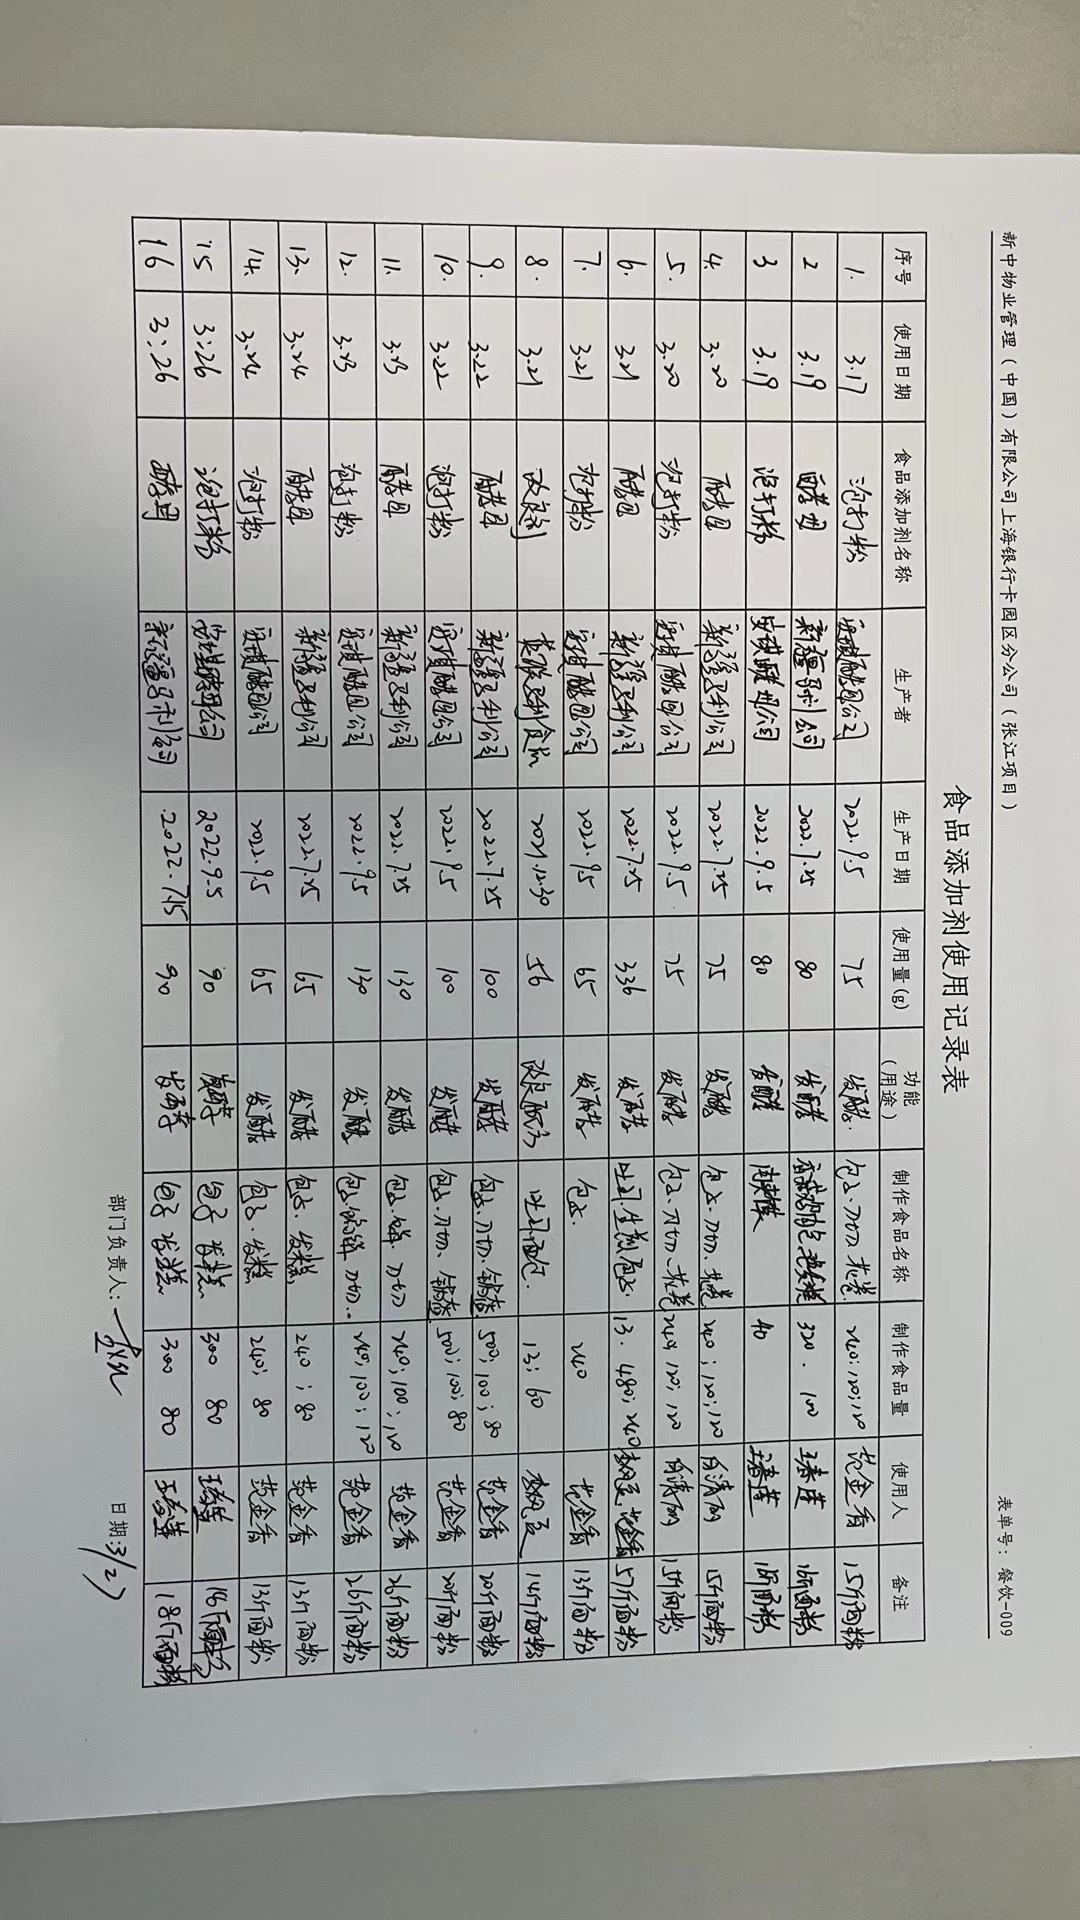 新中物业管理（中国）有限公司上海银行卡园区分公司（张江项目） 表单号：餐饮-009
食品添加剂使用记录表
序号 使用日期 食品添加剂名称 生产者 生产日期 使用量(g) 功能（用途） 制作食品名称 制作食品量 使用人 备注
1. 3.17 泡打粉 安琪酵母公司 2022.9.5 75 发酵. 包子.刀切.花卷 240;120;120 范金香 15斤面粉
2 3.19 酵母 新疆马利公司 2022.7.25 80 发酵 320. 100 王春莲 16斤面粉
3 3.19 泡打粉 安琪酵母公司 2022.9.5 80 发酵 40 王春莲 面粉
4. 3.20 酵母 新疆马利公司 2022.7.25 75 发酵 包子.刀切.花卷 240;120;120 15斤面粉
5. 3.20 泡打粉 安琪酵母公司 2022.9.5 75 发酵 包子.刀切.花卷 240;120;120 15斤面粉
6. 3.21 酵母 新疆马利公司 2022.7.25 336 发酵 吐司.生煎.包子. 13. 480;240 范金香 57斤面粉
7. 3.21 泡打粉 安琪酵母公司 2022.9.5 65 发酵 包子. 240 范金香 13斤面粉
8. 3.21 改良剂 2021.12.30 56 吐司.面包. 13;60 14斤面粉
9. 3.22 酵母 新疆马利公司 2022.7.25 100 发酵 包子.刀切. 500;100;80 范金香 20斤面粉
10. 3.22 泡打粉 安琪酵母公司 2022.9.5 100 发酵 包子.刀切. 500;100;80 范金香 20斤面粉
11. 3.23 酵母 新疆马利公司 2022.7.25 130 发酵 包子. 刀切 240;100;120 范金香 26斤面粉
12. 3.23 泡打粉 安琪酵母公司 2022.9.5 130 发酵 包子. 刀切. 240;100;120 范金香 26斤面粉
13. 3.24 酵母 新疆马利公司 2022.7.25 65 发酵 包子.发糕 240;80 范金香 13斤面粉
14. 3.24 泡打粉 安琪酵母公司 2022.9.5 65 发酵 包子.发糕 240;80 范金香 13斤面粉
15 3.26 泡打粉 安琪酵母公司 2022.9.5 90 发酵 包子 发糕 300 80 王春莲 18斤面粉
16 3.26 酵母 新疆马利公司 2022.7.15 90 发酵 包子 发糕 300 80 王春莲 18斤面粉
部门负责人： 日期:3/27